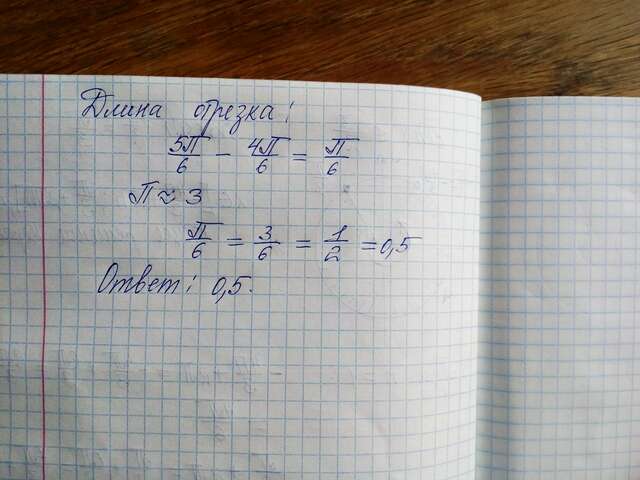 Длина отрезка:
5П/6 - 4П/6 = П/6
П ≈ 3
П/6 = 3/6 = 1/2 = 0,5
Ответ: 0,5.